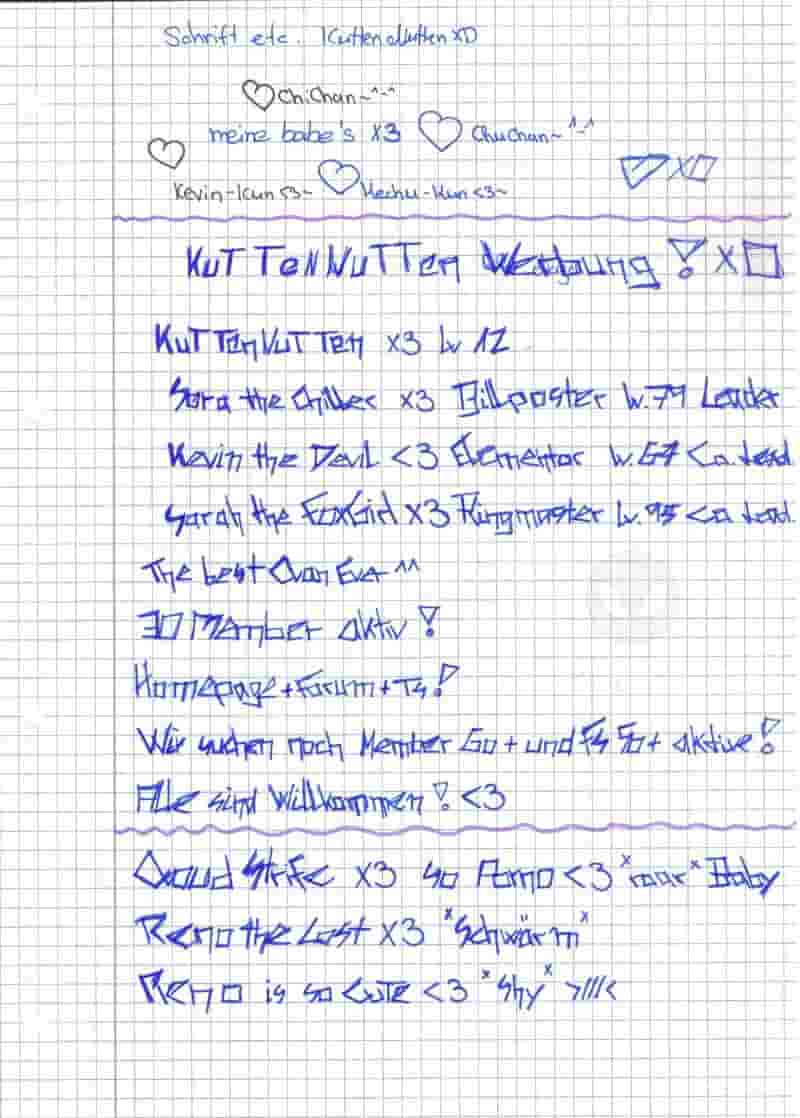 Schrift etc. KuttenNutten XD
ChiChan~^-^
meine babe's x3 ChuChan~^-^
Kevin-Kun <3~ Hechu-Kun <3~
XD
KuTTenNuTTen Werbung! XD
KuTTenNuTTen x3 Lv 12
Sora the Chiller x3 Billposter Lv.79 Leader
Kevin the Devil <3 Elementor Lv.67 Co. Lead.
Sarah the FoxGirl x3 Ringmaster Lv.95 Co Lead.
The best Clan Ever ^^
30 Member aktiv!
Homepage+Forum+Ts!
Wir suchen noch Member 60+ und 50+ aktive!
Alle sind Willkommen! <3
Cloud Strife x3 so Porno <3 *roar* Baby
Reno the Lost x3 *Schwärm*
Reno is so Cute <3 *Shy* >///<